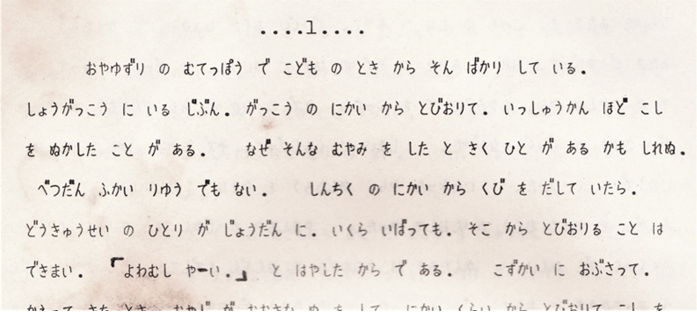 ....1....
おやゆずり の むてっぽう で こども の とき から そん ばかり して いる.
しょうがっこう に いる じぶん. がっこう の にかい から とびおりて. いっしゅうかん ほど こし
を ぬかした こと が ある. なぜ そんな むやみ を した と きく ひと が ある かも しれぬ.
べつだん ふかい りゆう でも ない. しんちく の にかい から くび を だして いたら.
どうきゅうせい の ひとり が じょうだん に. いくら いばっても. そこ から とびおりる こと は
できまい. 「よわむし やーい.」 と はやした から で ある. こずかい に おぶさって.
かえって きた とき. おやじ が おおきな め を して にかい くらい から とびおりて こし を